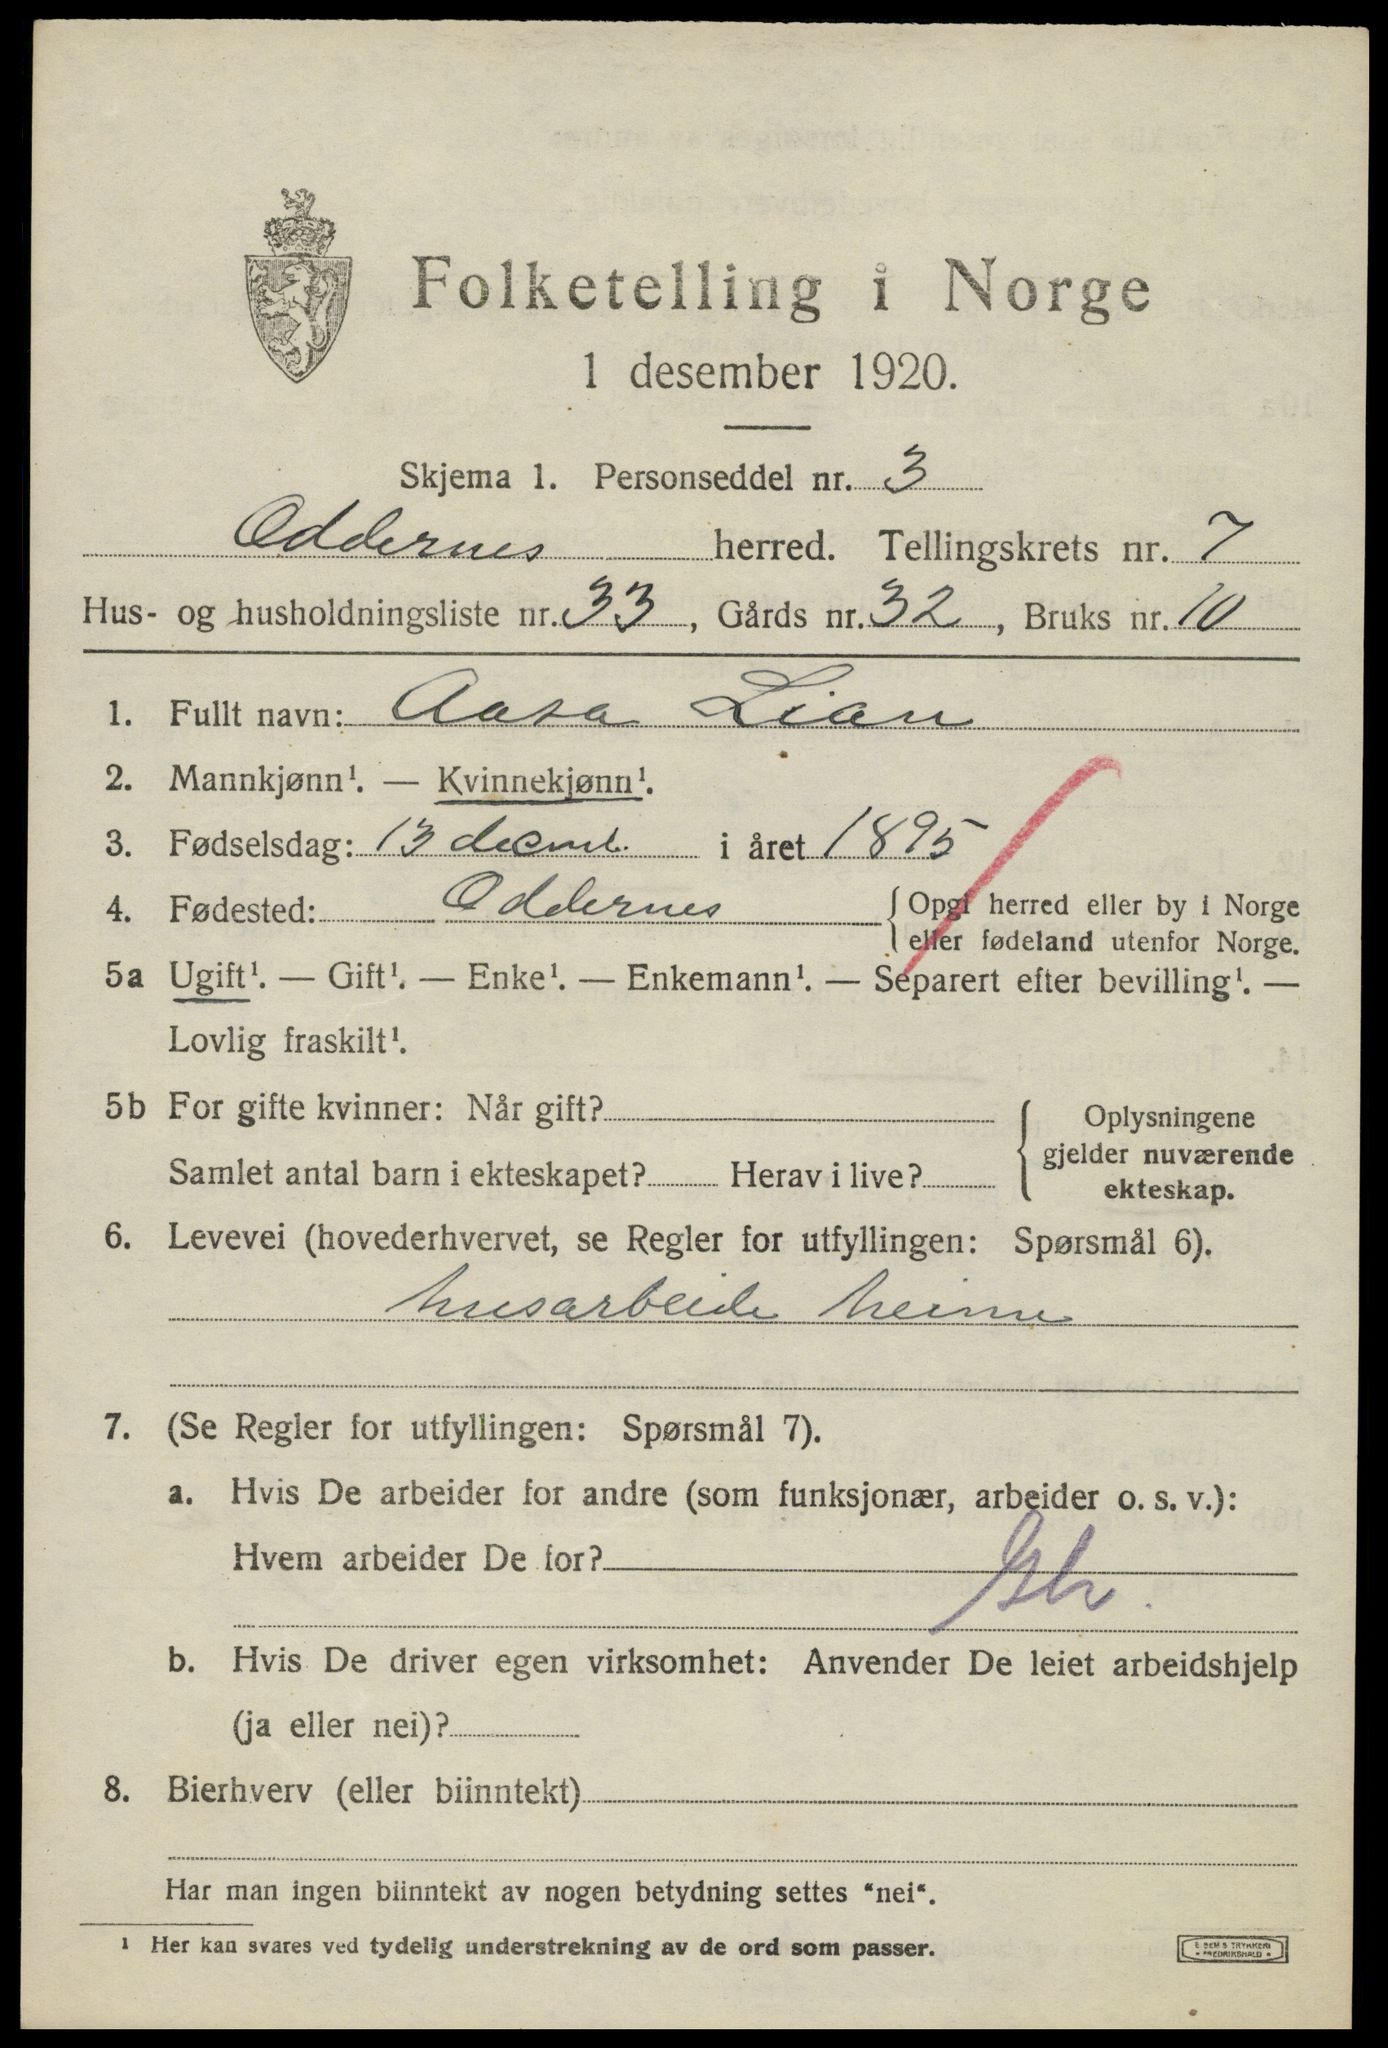 Folketelling i Norge
1 desember 1920.
Skjema 1. Personseddel nr. 3
Oddernes herred. Tellingskrets nr. 7
Hus- og husholdningsliste nr. 33, Gårds nr. 32, Bruks nr. 10
1. Fullt navn: Aasa Lian
2. Mannkjønn¹. — Kvinnekjønn¹.
3. Fødselsdag: 13 decmb. i året 1895
4. Fødested: Oddernes { Opgi herred eller by i Norge
eller fødeland utenfor Norge.
5a Ugift¹. — Gift¹. — Enke¹. — Enkemann¹. — Separert efter bevilling¹. —
Lovlig fraskilt¹.
5b For gifte kvinner: Når gift?
Samlet antal barn i ekteskapet? Herav i live?
{ Oplysningene
gjelder nuværende
ekteskap.
6. Levevei (hovederhvervet, se Regler for utfyllingen: Spørsmål 6).
husarbeide heime
7. (Se Regler for utfyllingen: Spørsmål 7).
a. Hvis De arbeider for andre (som funksjonær, arbeider o. s. v.):
Hvem arbeider De for?
b. Hvis De driver egen virksomhet: Anvender De leiet arbeidshjelp
(ja eller nei)?
8. Bierhverv (eller biinntekt)
Har man ingen biinntekt av nogen betydning settes "nei".
¹ Her kan svares ved tydelig understrekning av de ord som passer.
E SEM S TRYKKERI
FREDRIKSHALD